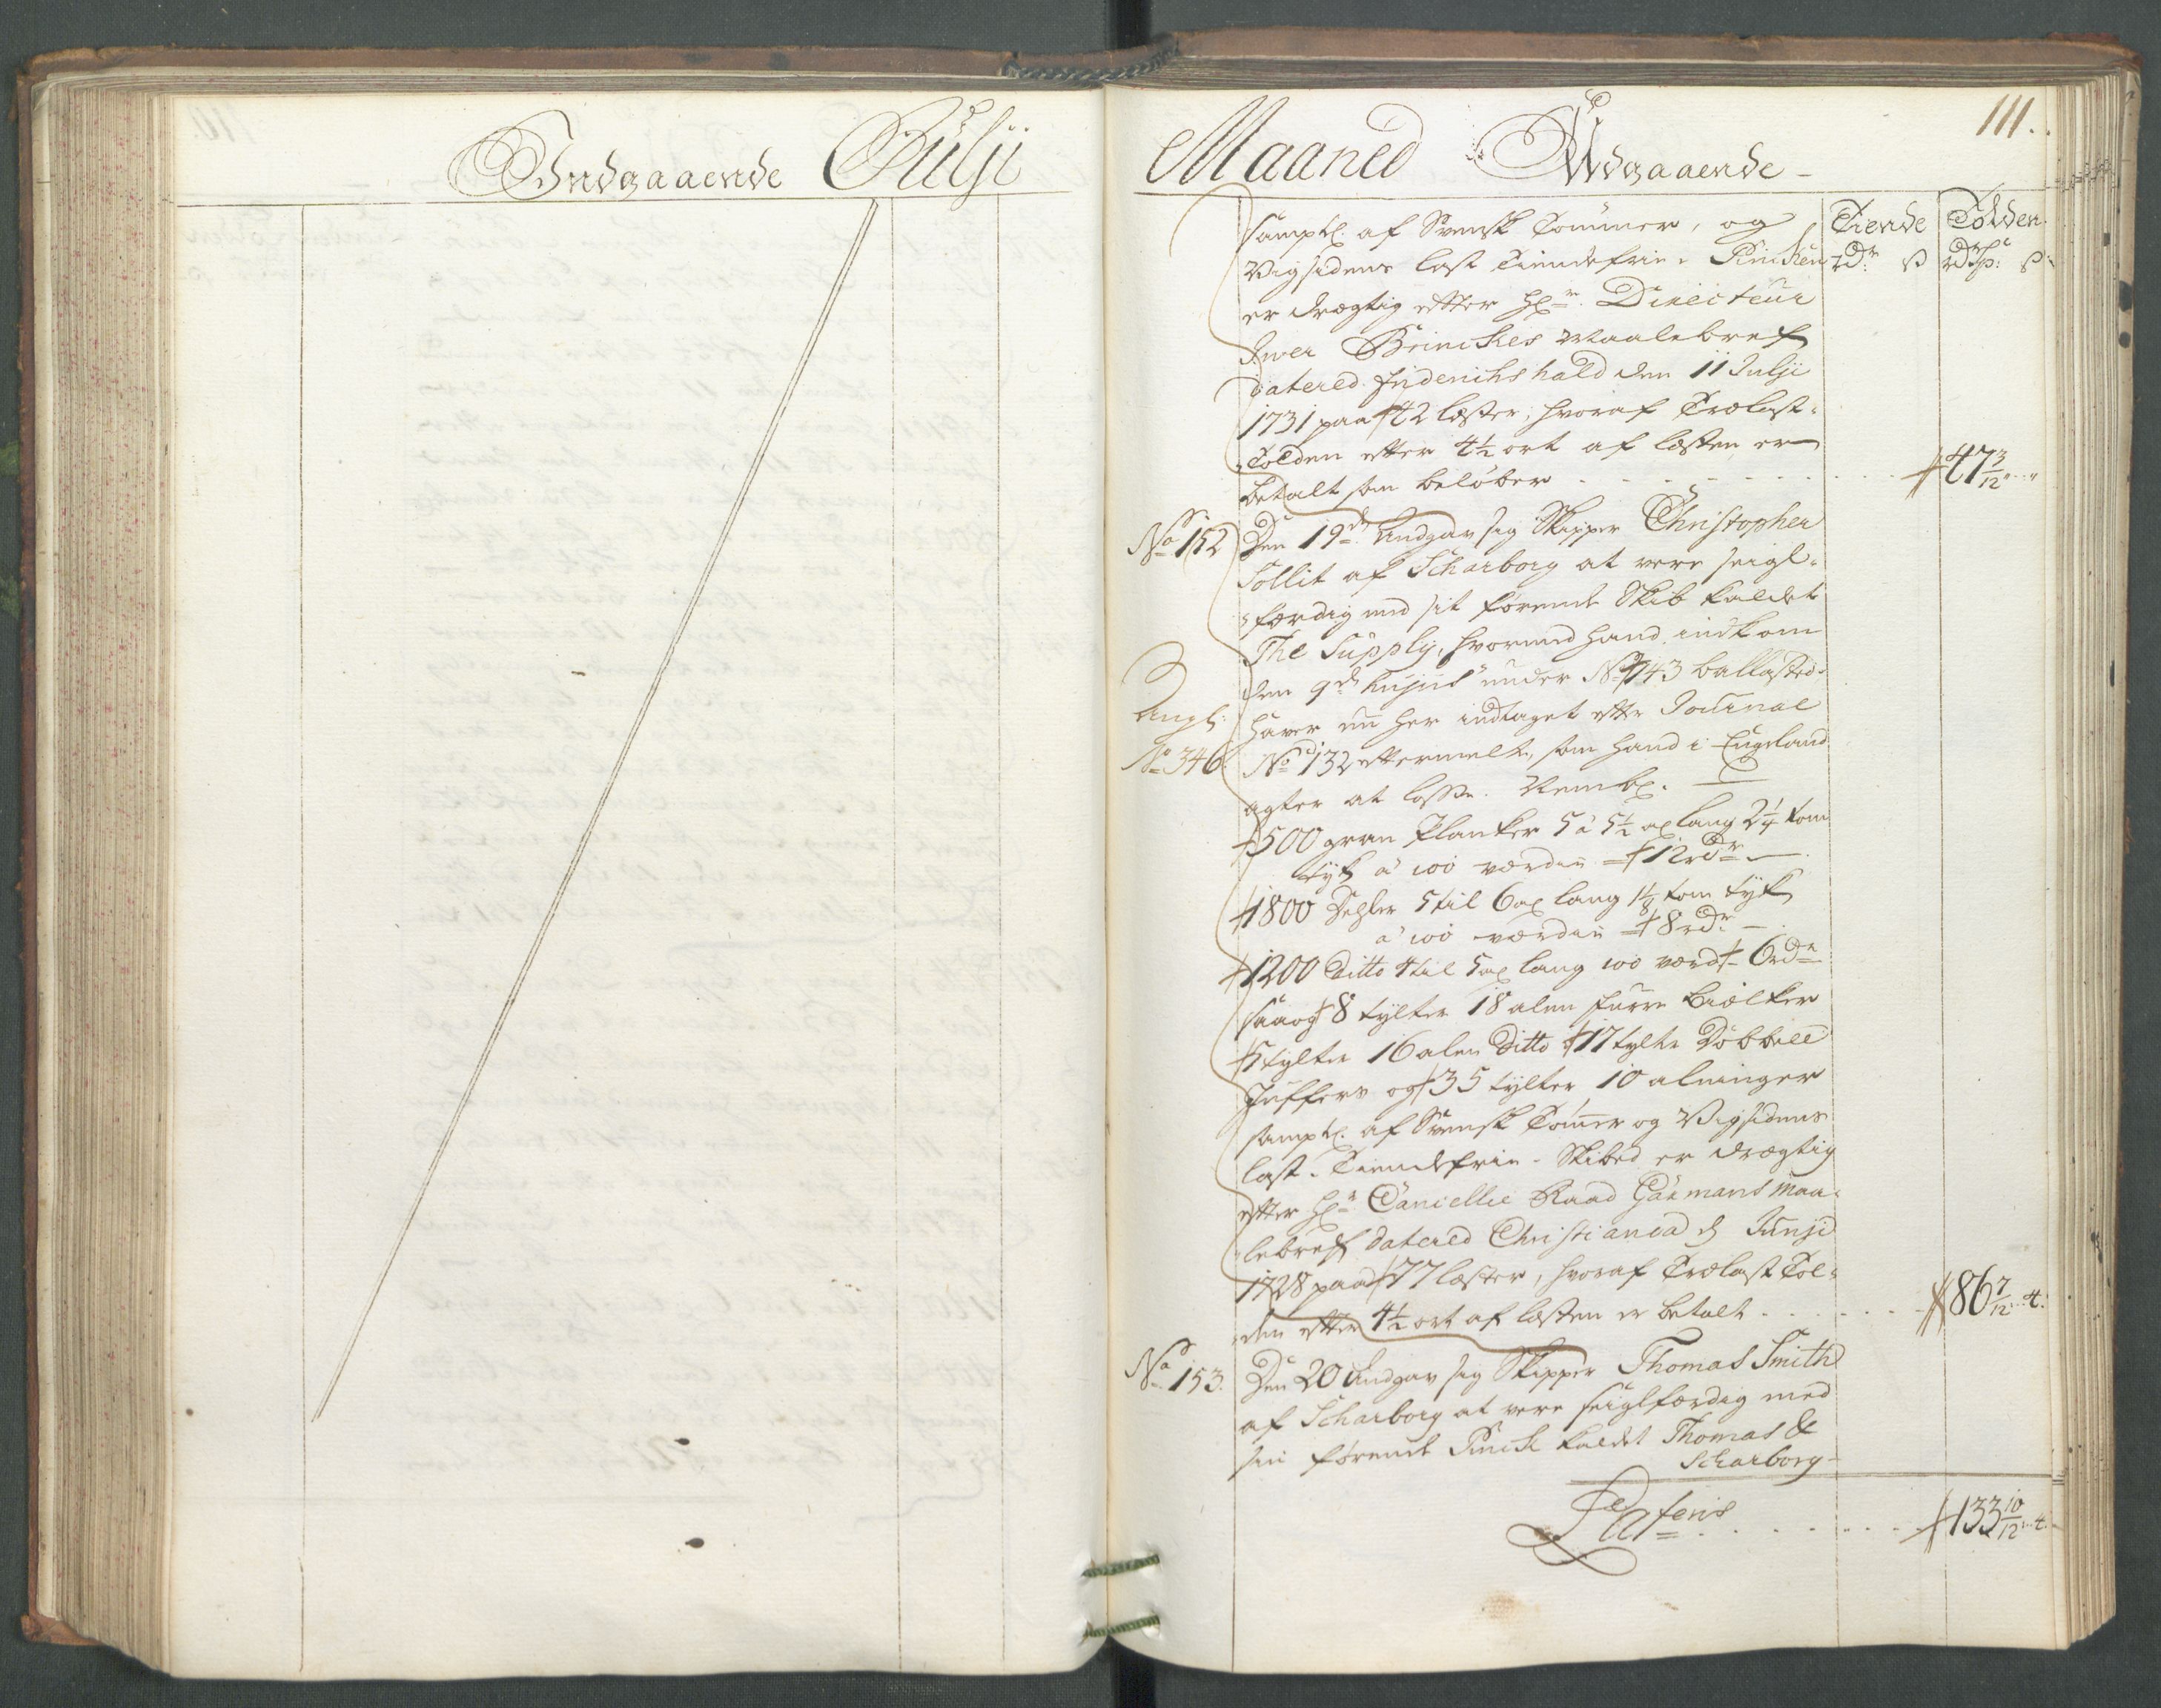 Indgaaende Julji
Maaned Udgaaende
111.
Tiende Tolden
rdr ß rdr sp: ß
samptl. af Svensk Tømmer, og
Vigsidens last Tiendefrie. Pincken
er drægtig efter Hr. Directeur
Iver Brinckes Maalebref
datered Friderichshald den 11 Julji
1731 paa 42 læster, hvoraf Trælast-
Tolden efter 4½ ort af læsten er
betalt som beløber 47 3/12 " "
No 152 Den 19de Andgav sig Skipper Christopher
Sollit af Scharborg at vere seigl-
færdig med sit førende Skib kaldet
The Supply, hvormed hand indkom
den 9de hujus under No 143 ballasted
Engl: haver nu her indtaget efter Journal
No 346 No 132 eftermelte, som hand i Engeland
agter at losse. Nembl.
500 gran Planker 5 à 5½ al lang 2¼ tom
tyk à 100 værdie 12 rdr
1800 Dehler 5 til 6 al lang 1⅛ tom tyk
à 100 værdie 8 rdr
1200 Ditto 4 til 5 al lang 100 værd 6 rdr
saa og 8 tylter 18 alen furre Biælker
5 tylter 16 alen Ditto 17 tylte Dobbelt
Juffers og 35 tylter 10 alninger
samptl. af Svensk Tømer og Vigsidens
last. Tiendefrie. Skibed er drægtig
efter Hr. Cancellie Raad Garmans Maa-
lebref datered Christiania d Junji
1728 paa 77 læster, hvoraf Trælast Tol-
den efter 4½ ort af læsten er betalt 86 7/12 4.
No 153. Den 20 Andgav sig Skipper Thomas Smith
af Scharborg at vere seiglfærdig med
sin førende Pinck kaldet Thomas &
Scharborg
Lateris 133 10/12 4.